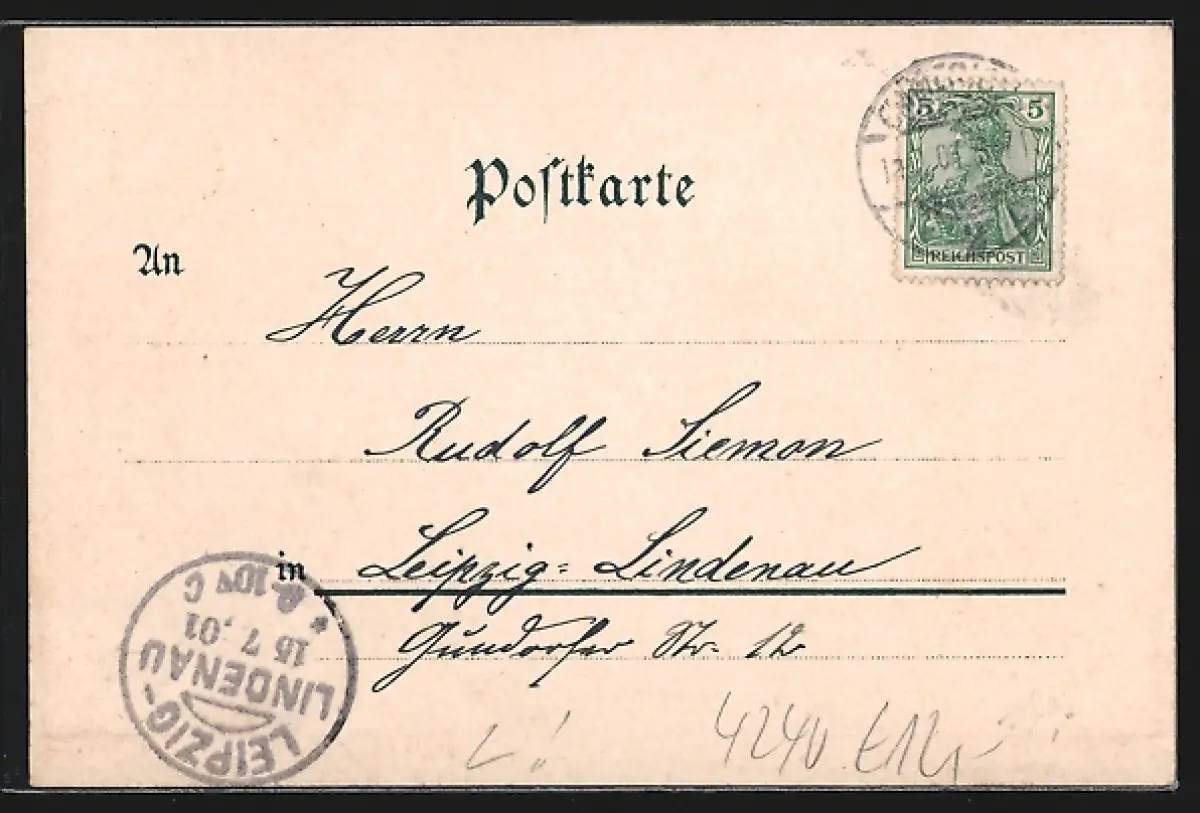 Postkarte
5 5
REICHSPOST
An
Herrn
Rudolf Siemon
in Leipzig-Lindenau
Gundorfer Str. 12
LEIPZIG-
LINDENAU
15 7.01
8-10V C
4240